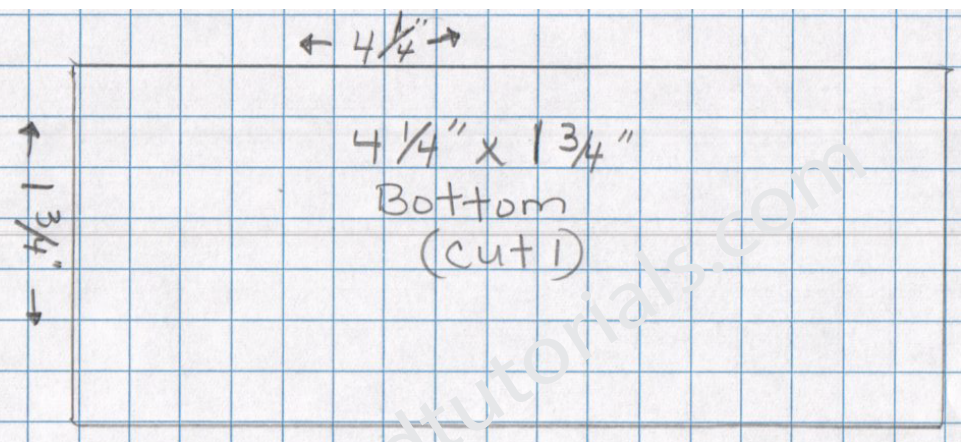 4 1/4"
4 1/4" x 1 3/4"
Bottom
(cut 1)
1 3/4"
dtutorials.com